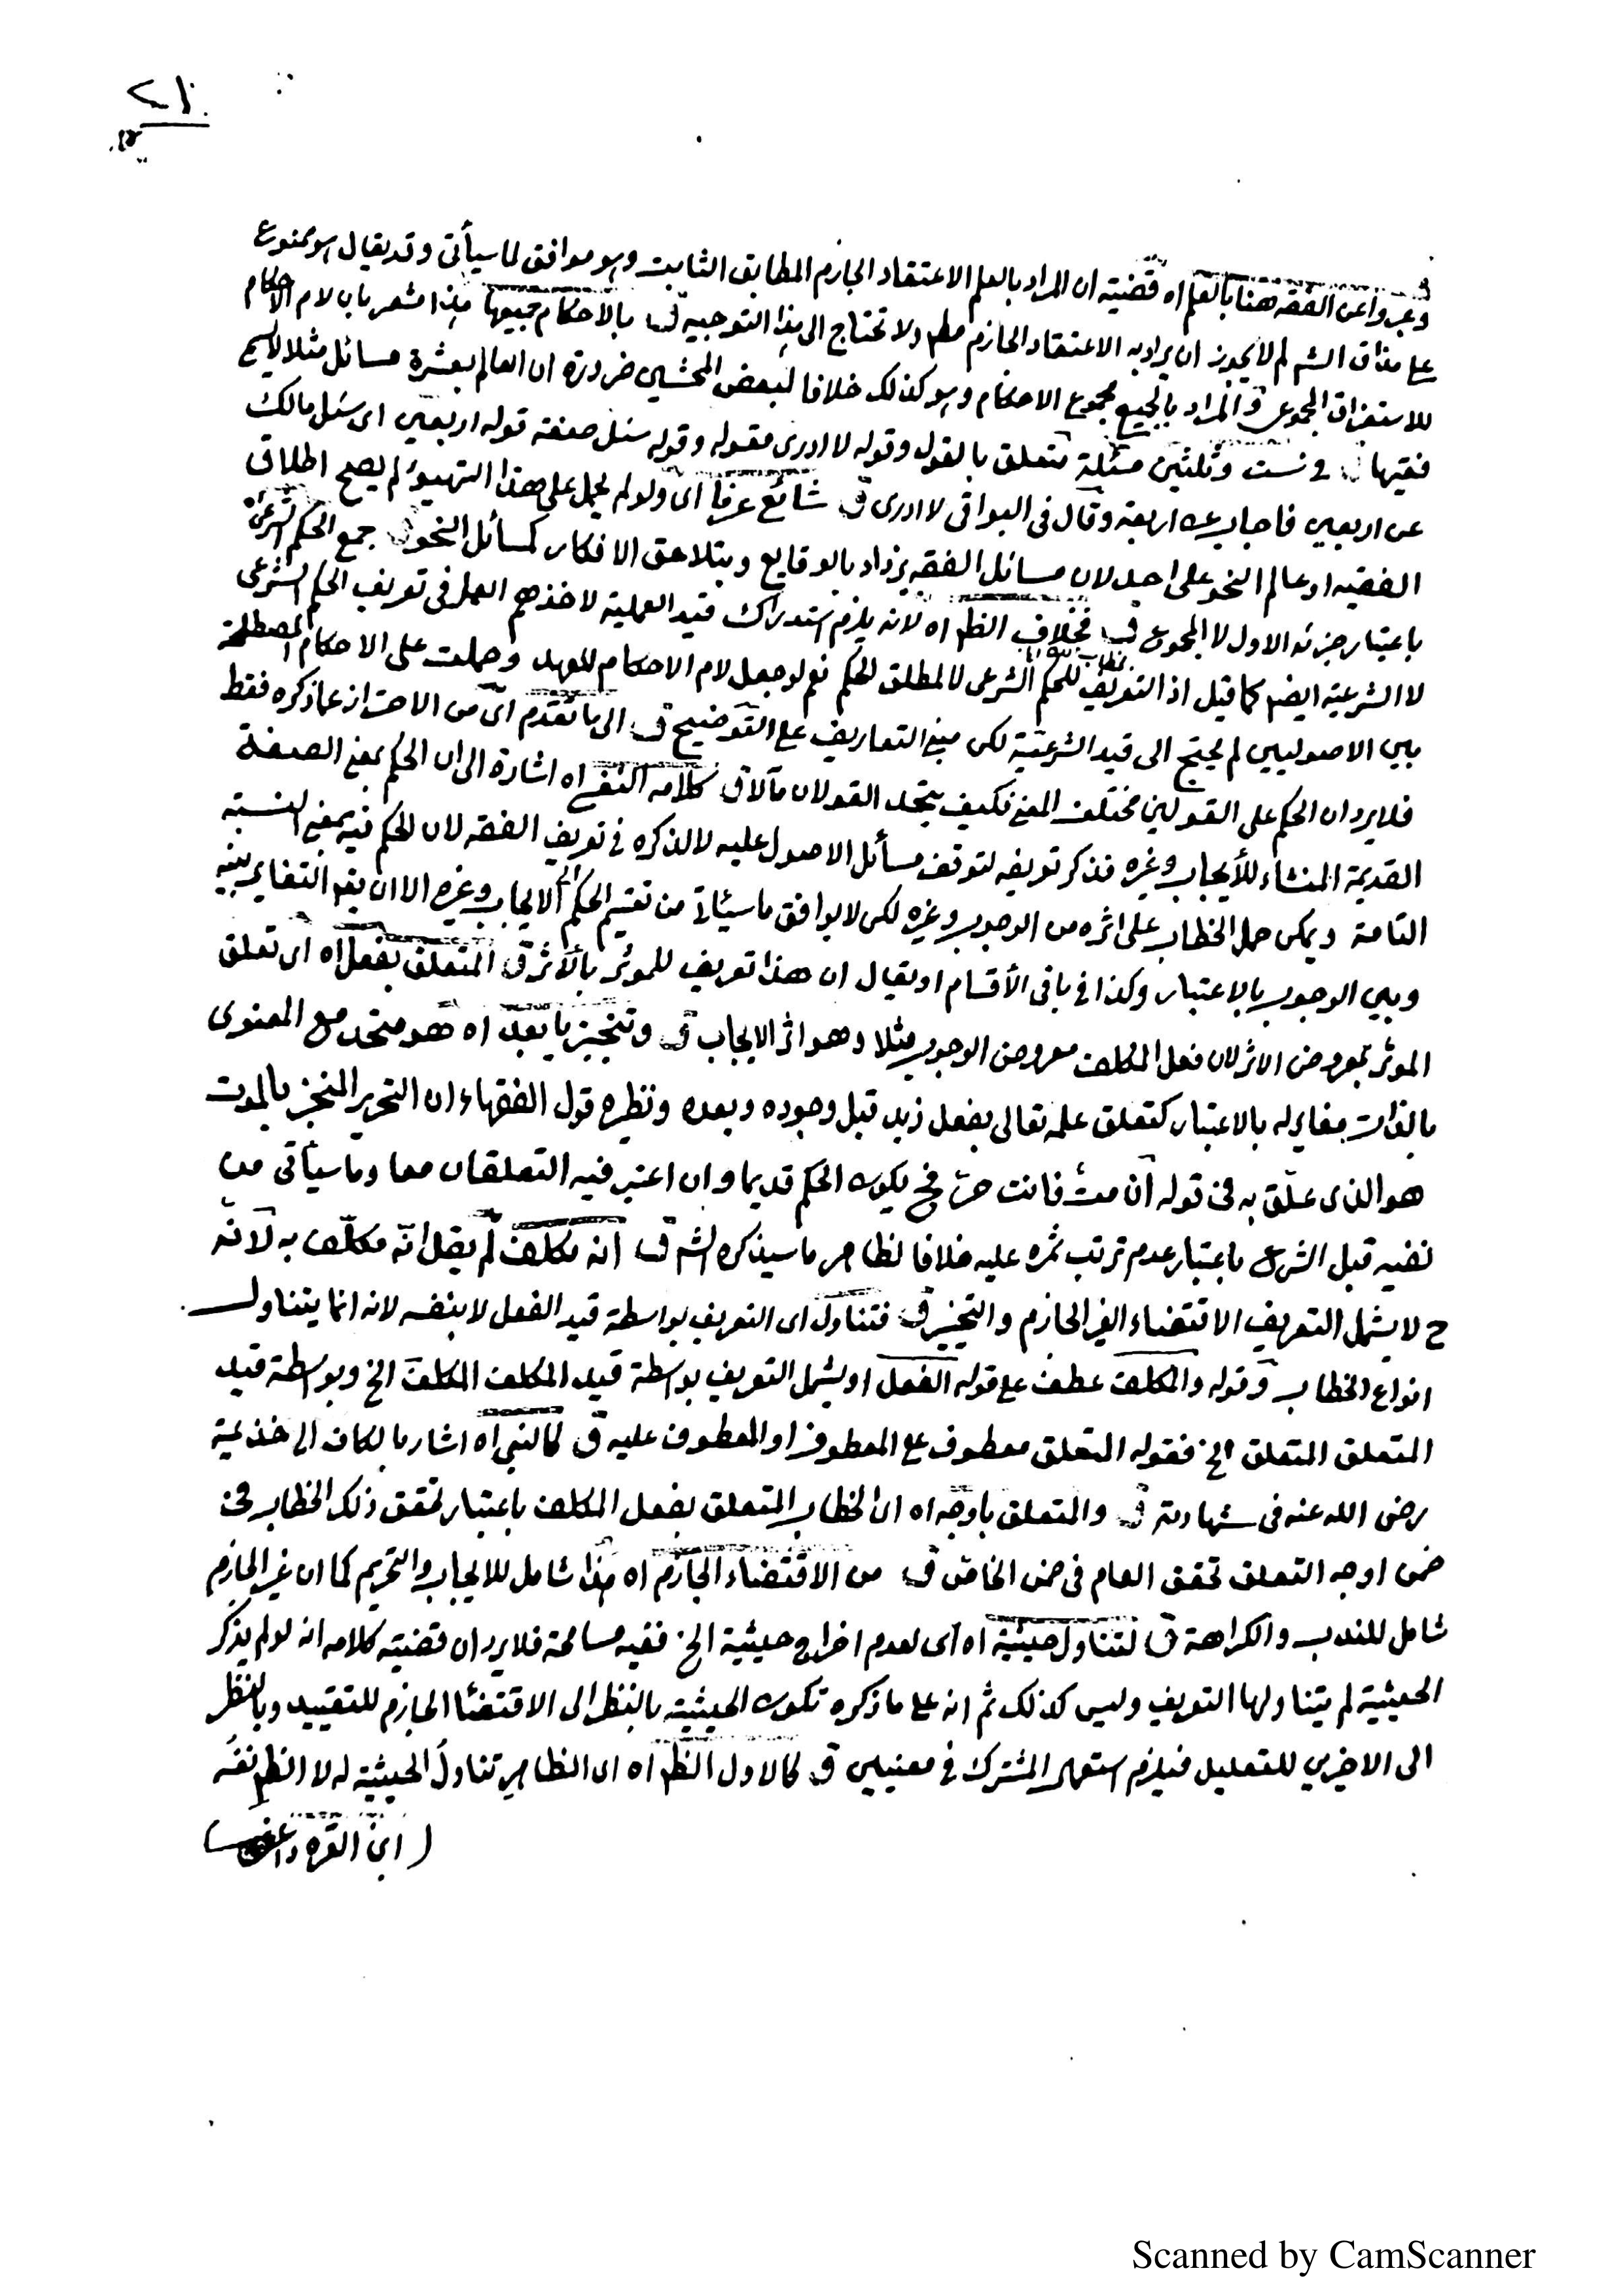 ٢١٠
١٢
ق وعبروا عن الفقه هنا بالعلم اه قضيته ان المراد بالعلم الاعتقاد الجازم المطابق الثابت وهو موافق لما سيأتى وقد يقال هو ممنوع
على مذاق الشم لم لا يجوز ان يراد به الاعتقاد الجازم مطم ولا تحتاج الى هذا التوجيه ق بالاحكام جميعها هذا مشعر بان لام الاحكام
للاستغراق المجموعى والمراد بالجميع مجموع الاحكام وهو كذلك خلافا لبعض المحشين ضرورة ان العالم بعشرة مسائل مثلا لا يسمى
فقيها ق فى ست وثلثين مسئلة متعلق بالقول وقوله لا ادرى مقوله وقوله سئل صفة قوله اربعين اى سئل مالك
عن اربعين فاجاب عن اربعة وقال فى البواقى لا ادرى ق شائع عرفا اى ولو لم يحمل على هذا التهيؤ لم يصح اطلاق
الفقيه او عالم النحو على احد لان مسائل الفقه يزداد بالوقايع وبتلاحق الافكار كمسائل النحو ق جمع الحكم الشرعى اه
باعتبار جزئه الاول لا المجموع ق فخلاف الظم اه لانه يلزم استدراك قيد العملية لاخذهم العمل فى تعريف الحكم الشرعى
لا الشرعية ايضم كما قيل اذ التعريف للحكم الشرعى لا لمطلق الحكم نعم لو جعل لام الاحكام للعهد وحملت على الاحكام المصطلحة
بين الاصوليين لم يحتج الى قيد الشرعية لكن مبنى التعاريف على التوضيح ق الى ما تقدم اى من الاحتراز عما ذكره فقط
فلا يرد ان الحكم على القولين مختلف المعنى فكيف يتحد القولان مآلا ق كلامه النفسى اه اشارة الى ان الحكم بمعنى الصفة
القديمة المنشاء للأيجاب وغيره فذكر تعريفه لتوقف مسائل الاصول عليه لا لذكره فى تعريف الفقه لان الحكم فيه بمعنى النسبة
التامة ويمكن حمل الخطاب على اثره من الوجوب وغيره لكن لا يوافق ما سيأتى من تقسيم الحكم الى الايجاب وغيره الا ان يقم التغاير بينه
وبين الوجوب بالاعتبار وكذا فى باقى الأقسام او يقال ان هذا تعريف للموثر بالأثر ق المتعلق بفعل اه اى تعلق
الموثر بمعروض الاثر لان فعل المكلف معروض الوجوب مثلا وهو اثر الايجاب ق وتنجيزيا بعد اه هو متحد مع المعنوى
بالذات مغاير له بالاعتبار كتعلق علمه تعالى بفعل زيد قبل وجوده وبعده ونظيره قول الفقهاء ان التحرير المنجز بالموت
هو الذى علق به فى قوله ان مت فانت حر فح يكون الحكم قديما وان اعتبر فيه التعلقان معا وما سيأتى من
نفيه قبل الشرع باعتبار عدم ترتب ثمره عليه خلافا لظاهر ما سيذكره الشم ق انه مكلف لم يقل انه مكلف به لانه
ح لا يشمل التعريف الاقتضاء الغير الجازم والتخيير ق فتناول اى التعريف بواسطة قيد الفعل لا بنفسه لانه انما يتناول
انواع الخطاب وقوله والمكلف عطف على قوله الفعل اى ويشمل التعريف بواسطة قيد المكلف المكلف الخ وبواسطة قيد
المتعلق المتعلق الخ فقوله المتعلق معطوف على المعطوف او المعطوف عليه ق كالنبى اه اشار بالكاف الى خذيمة
رضى الله عنه فى شهادته ق والمتعلق باوجه اه اى الخطاب المتعلق بفعل المكلف باعتبار تحقق ذلك الخطاب فى
ضمن اوجه التعلق تحقق العام فى ضمن الخاص ق من الاقتضاء الجازم اه هذا شامل للايجاب والتحريم كما ان غير الجازم
شامل للندب والكراهة ق لتناول حيثية اه اى لعدم اخراج حيثية الخ ففيه مسامحة فلا يرد ان قضية كلامه انه لو لم يذكر
الحيثية لم يتناولها التعريف وليس كذلك ثم انه على ما ذكره تكون الحيثية بالنظر الى الاقتضا الجازم للتقييد وبالنظر
الى الاخيرين للتعليل فيلزم استعمال المشترك فى معنيين ق كالاول الظم اه اى الظاهر تناول الحيثية له لا الظم نفسه
( ابن القره داغى )
Scanned by CamScanner